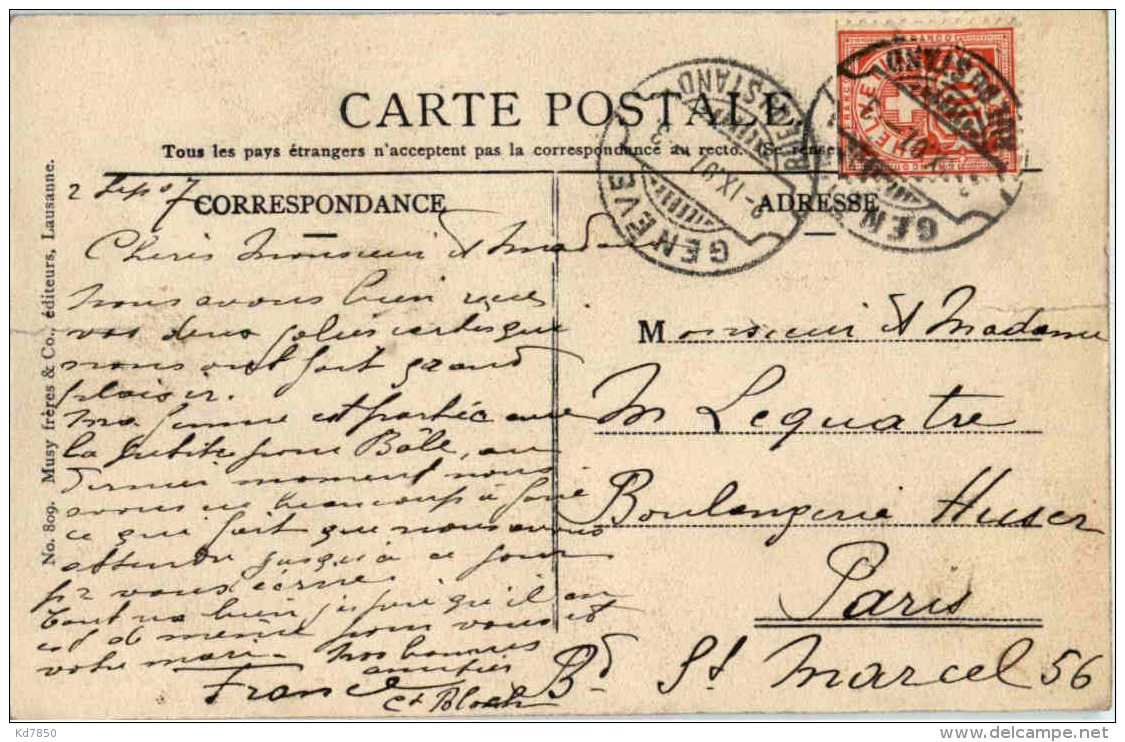 CARTE POSTALE.
Tous les pays étrangers n'acceptent pas la correspondance au recto. (Se rense
2 Sep 07
CORRESPONDANCE
ADRESSE
No. 809. Musy frères & Co., éditeurs, Lausanne.
Cheris Monsieur et Madame
nous avons bien reçues
vos deux jolies cartes que
nous ont fait grand
plaisir.
ma femme est partie avec
la petite pour Bâle, au
dernier moment nous
avons eu beaucoup à faire
ce qui fait que nous avons
attendu jusqu'à ce jour
pr vous écrire
Tout va bien j'espère qu'il en
est de même pour vous et
votre mari. Nos bonnes
amities
France
et Bloch
Monsieur et Madame
M Lequatre
Boulangerie Huser
Paris
Bd St Marcel 56
GENÈVE
2-IX.07
FRANCO
HELVETIA
GENÈVE
Kd7850
www.delcampe.net